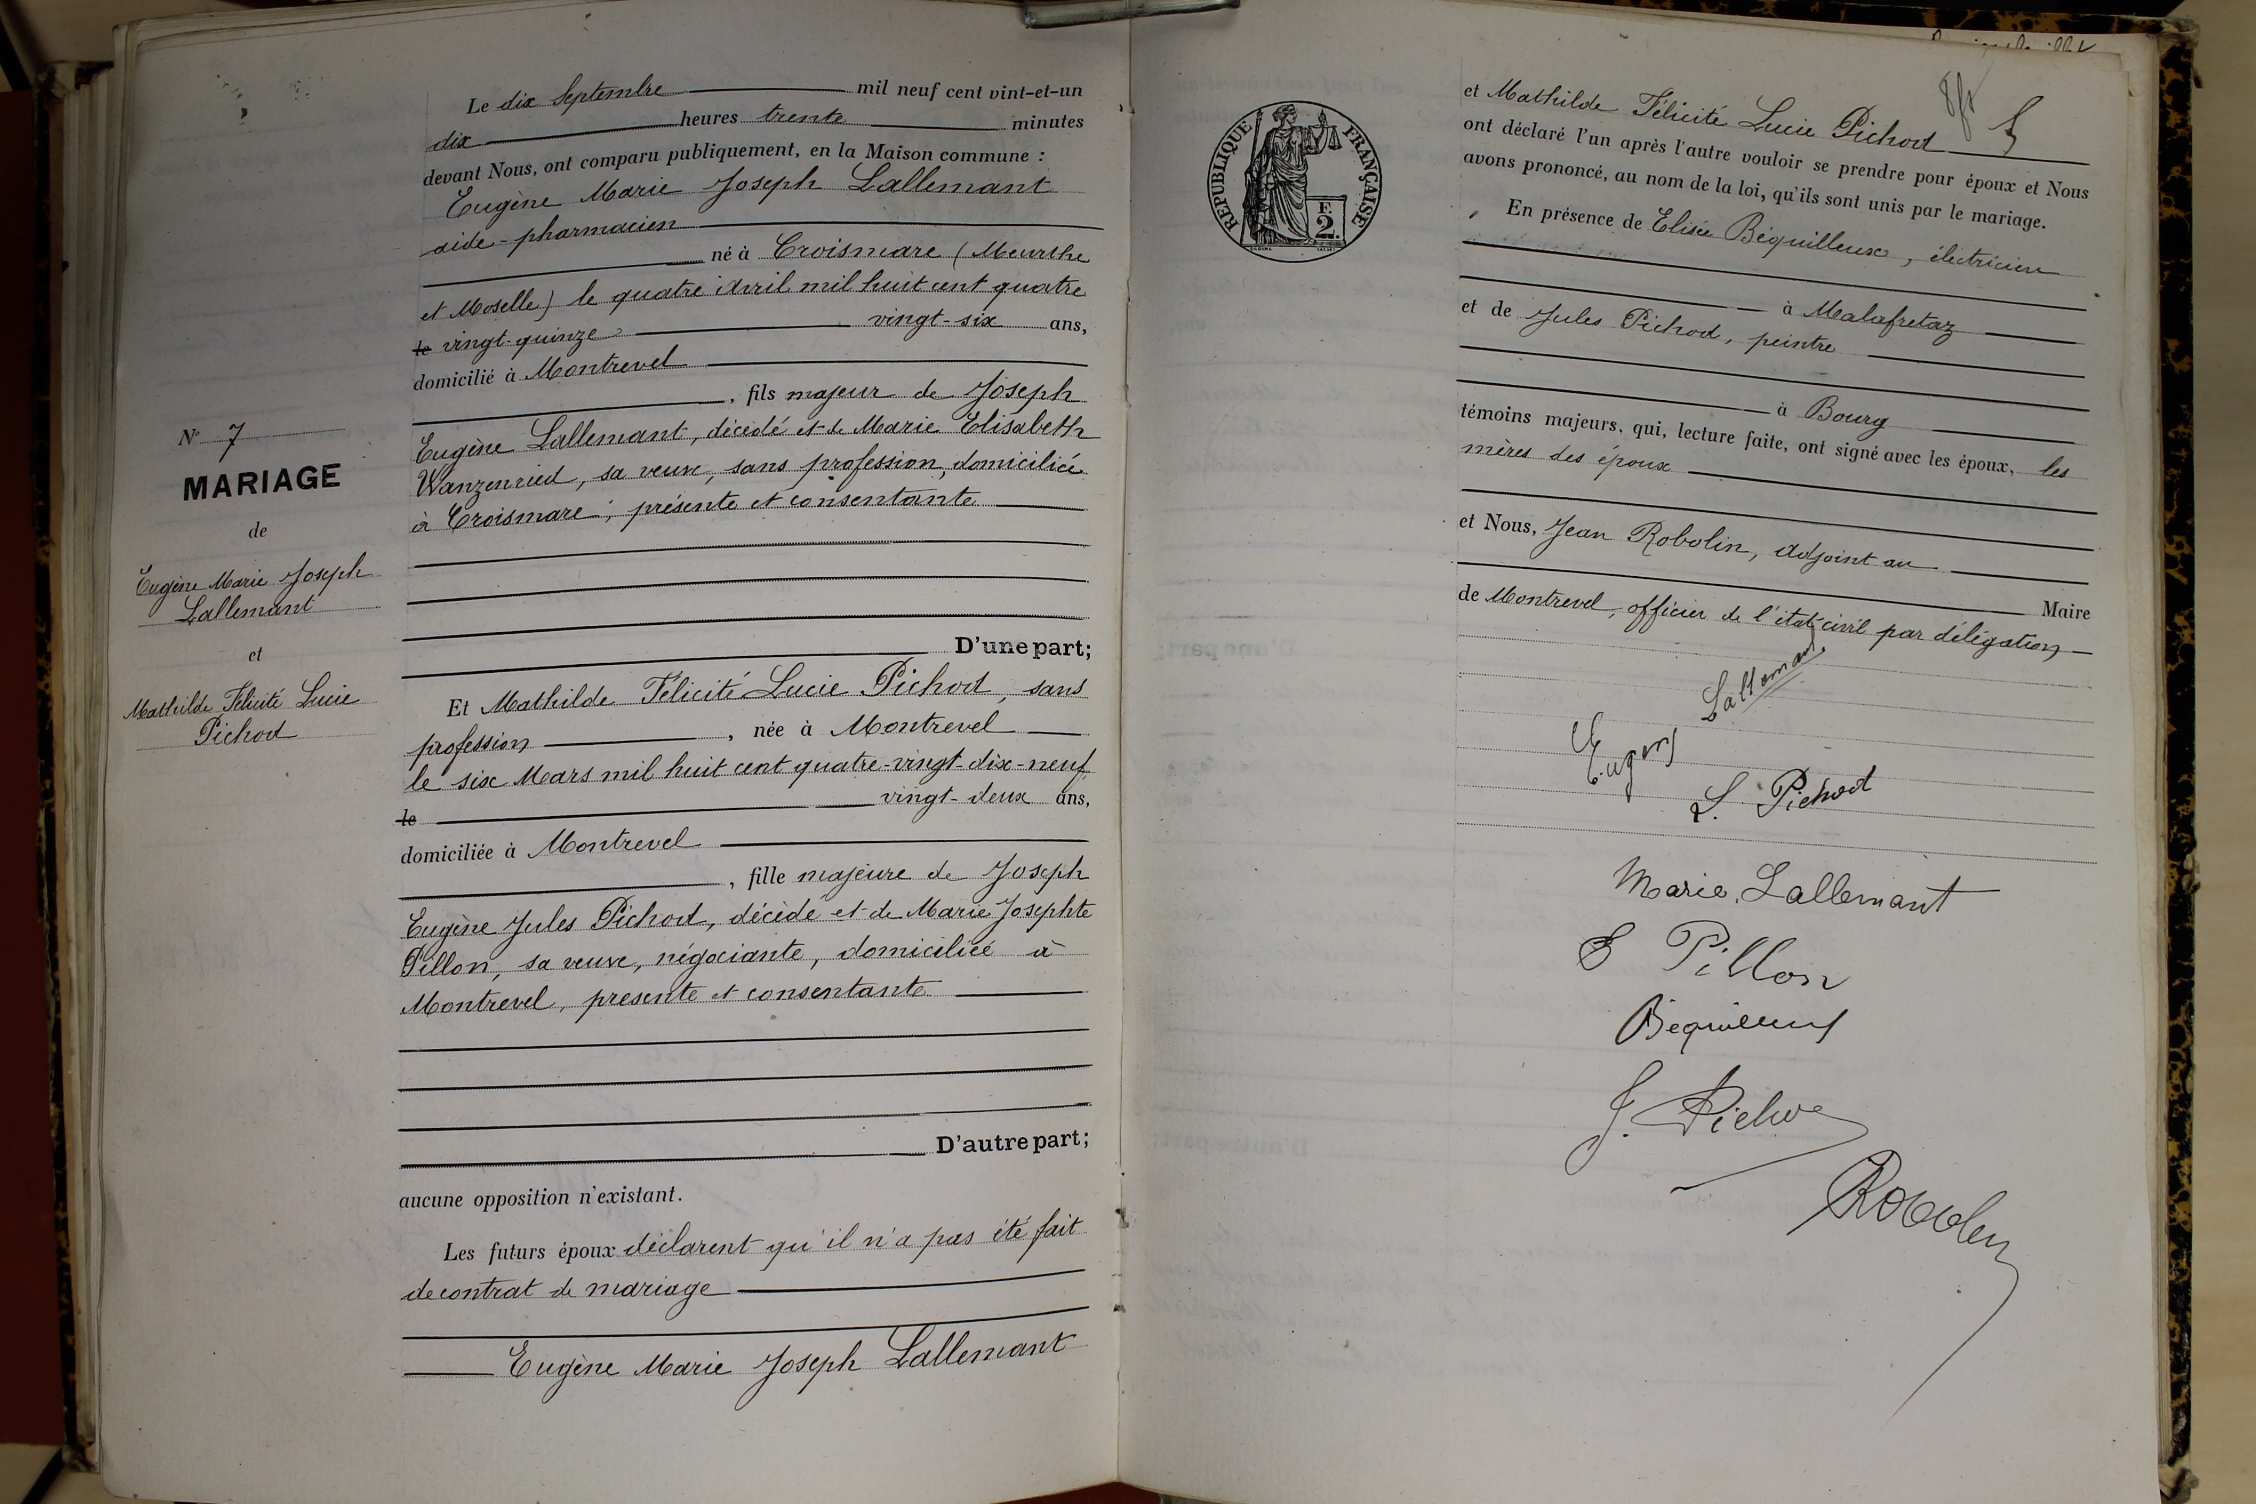 Le dix Septembre mil neuf cent vint-et-un
dix heures trente minutes
devant Nous, ont comparu publiquement, en la Maison commune :
Eugène Marie Joseph Lallemant
aide-pharmacien
né à Croismare (Meurthe
et Moselle) le quatre avril mil huit cent quatre
le vingt-quinze vingt-six ans,
domicilié à Montrevel
, fils majeur de Joseph
Eugène Lallemant, décédé et de Marie Elisabeth
Wanzenried, sa veuve, sans profession, domiciliée
à Croismare ; présente et consentante
D'une part;
Et Mathilde Félicité Lucie Pichod, sans
profession , née à Montrevel
le six Mars mil huit cent quatre-vingt-dix-neuf
le vingt-deux ans,
domiciliée à Montrevel
, fille majeure de Joseph
Eugène Jules Pichod, décédé et de Marie Josephte
Pillon, sa veuve, négociante, domiciliée à
Montrevel, présente et consentante
D'autre part;
aucune opposition n'existant.
Les futurs époux déclarent qu'il n'a pas été fait
de contrat de mariage
Eugène Marie Joseph Lallemant
N° 7
MARIAGE
de
Eugène Marie Joseph
Lallemant
et
Mathilde Félicité Lucie
Pichod
RÉPUBLIQUE FRANÇAISE
F.
2.
et Mathilde Félicité Lucie Pichod
ont déclaré l'un après l'autre vouloir se prendre pour époux et Nous
avons prononcé, au nom de la loi, qu'ils sont unis par le mariage.
En présence de Elisée Béquilleux, électricien
à Malafretaz
et de Jules Pichod, peintre
à Bourg
témoins majeurs, qui, lecture faite, ont signé avec les époux, les
mères des époux
et Nous, Jean Robolin, adjoint au
Maire
de Montrevel, officier de l'état civil par délégation
Eugène Lallemant
L. Pichod
Marie Lallemant
E Pillon
Bequilleux
J. Pichod
Robolin